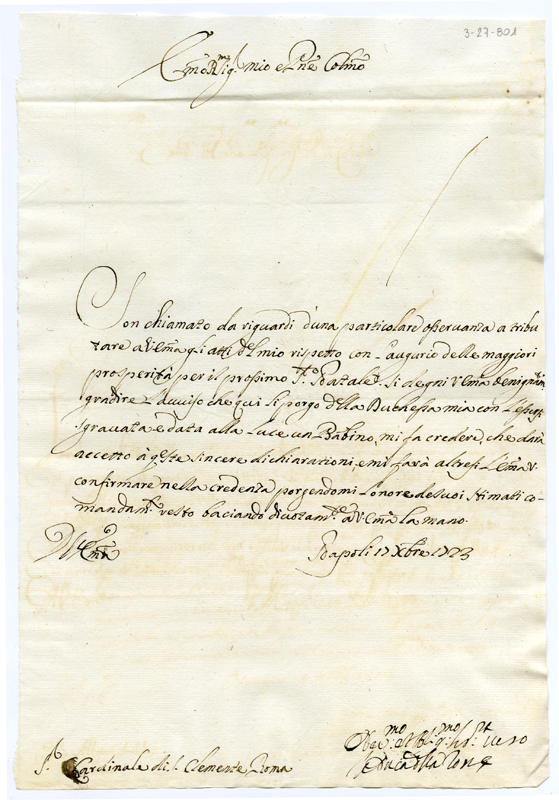 3-27-801
Emo Rmo Sigr mio e Pne Colmo
Son chiamato da riguardi d'una particolare osservanza a tribu
tare a V. Ema gli atti del mio rispetto con l'augurio delle maggiori
prosperità per il prossimo Sto Natale. Si degni V. Ema benignam
gradire l'avviso che qui li porgo della Duchessa mia con
sgravata e data alla luce un Babino, mi fa credere, che darà
accetto à queste sincere dichiarationi, e mi farà altresi l'Ema V.
confirmare nella credenza porgendomi l'onore de suoi stimati co-
mandamti resto baciando divotamte a V. Ema la mano.
Napoli 17 Xbre 1723
V. Ema
Sr Cardinale di S. Clemente Roma
Servo